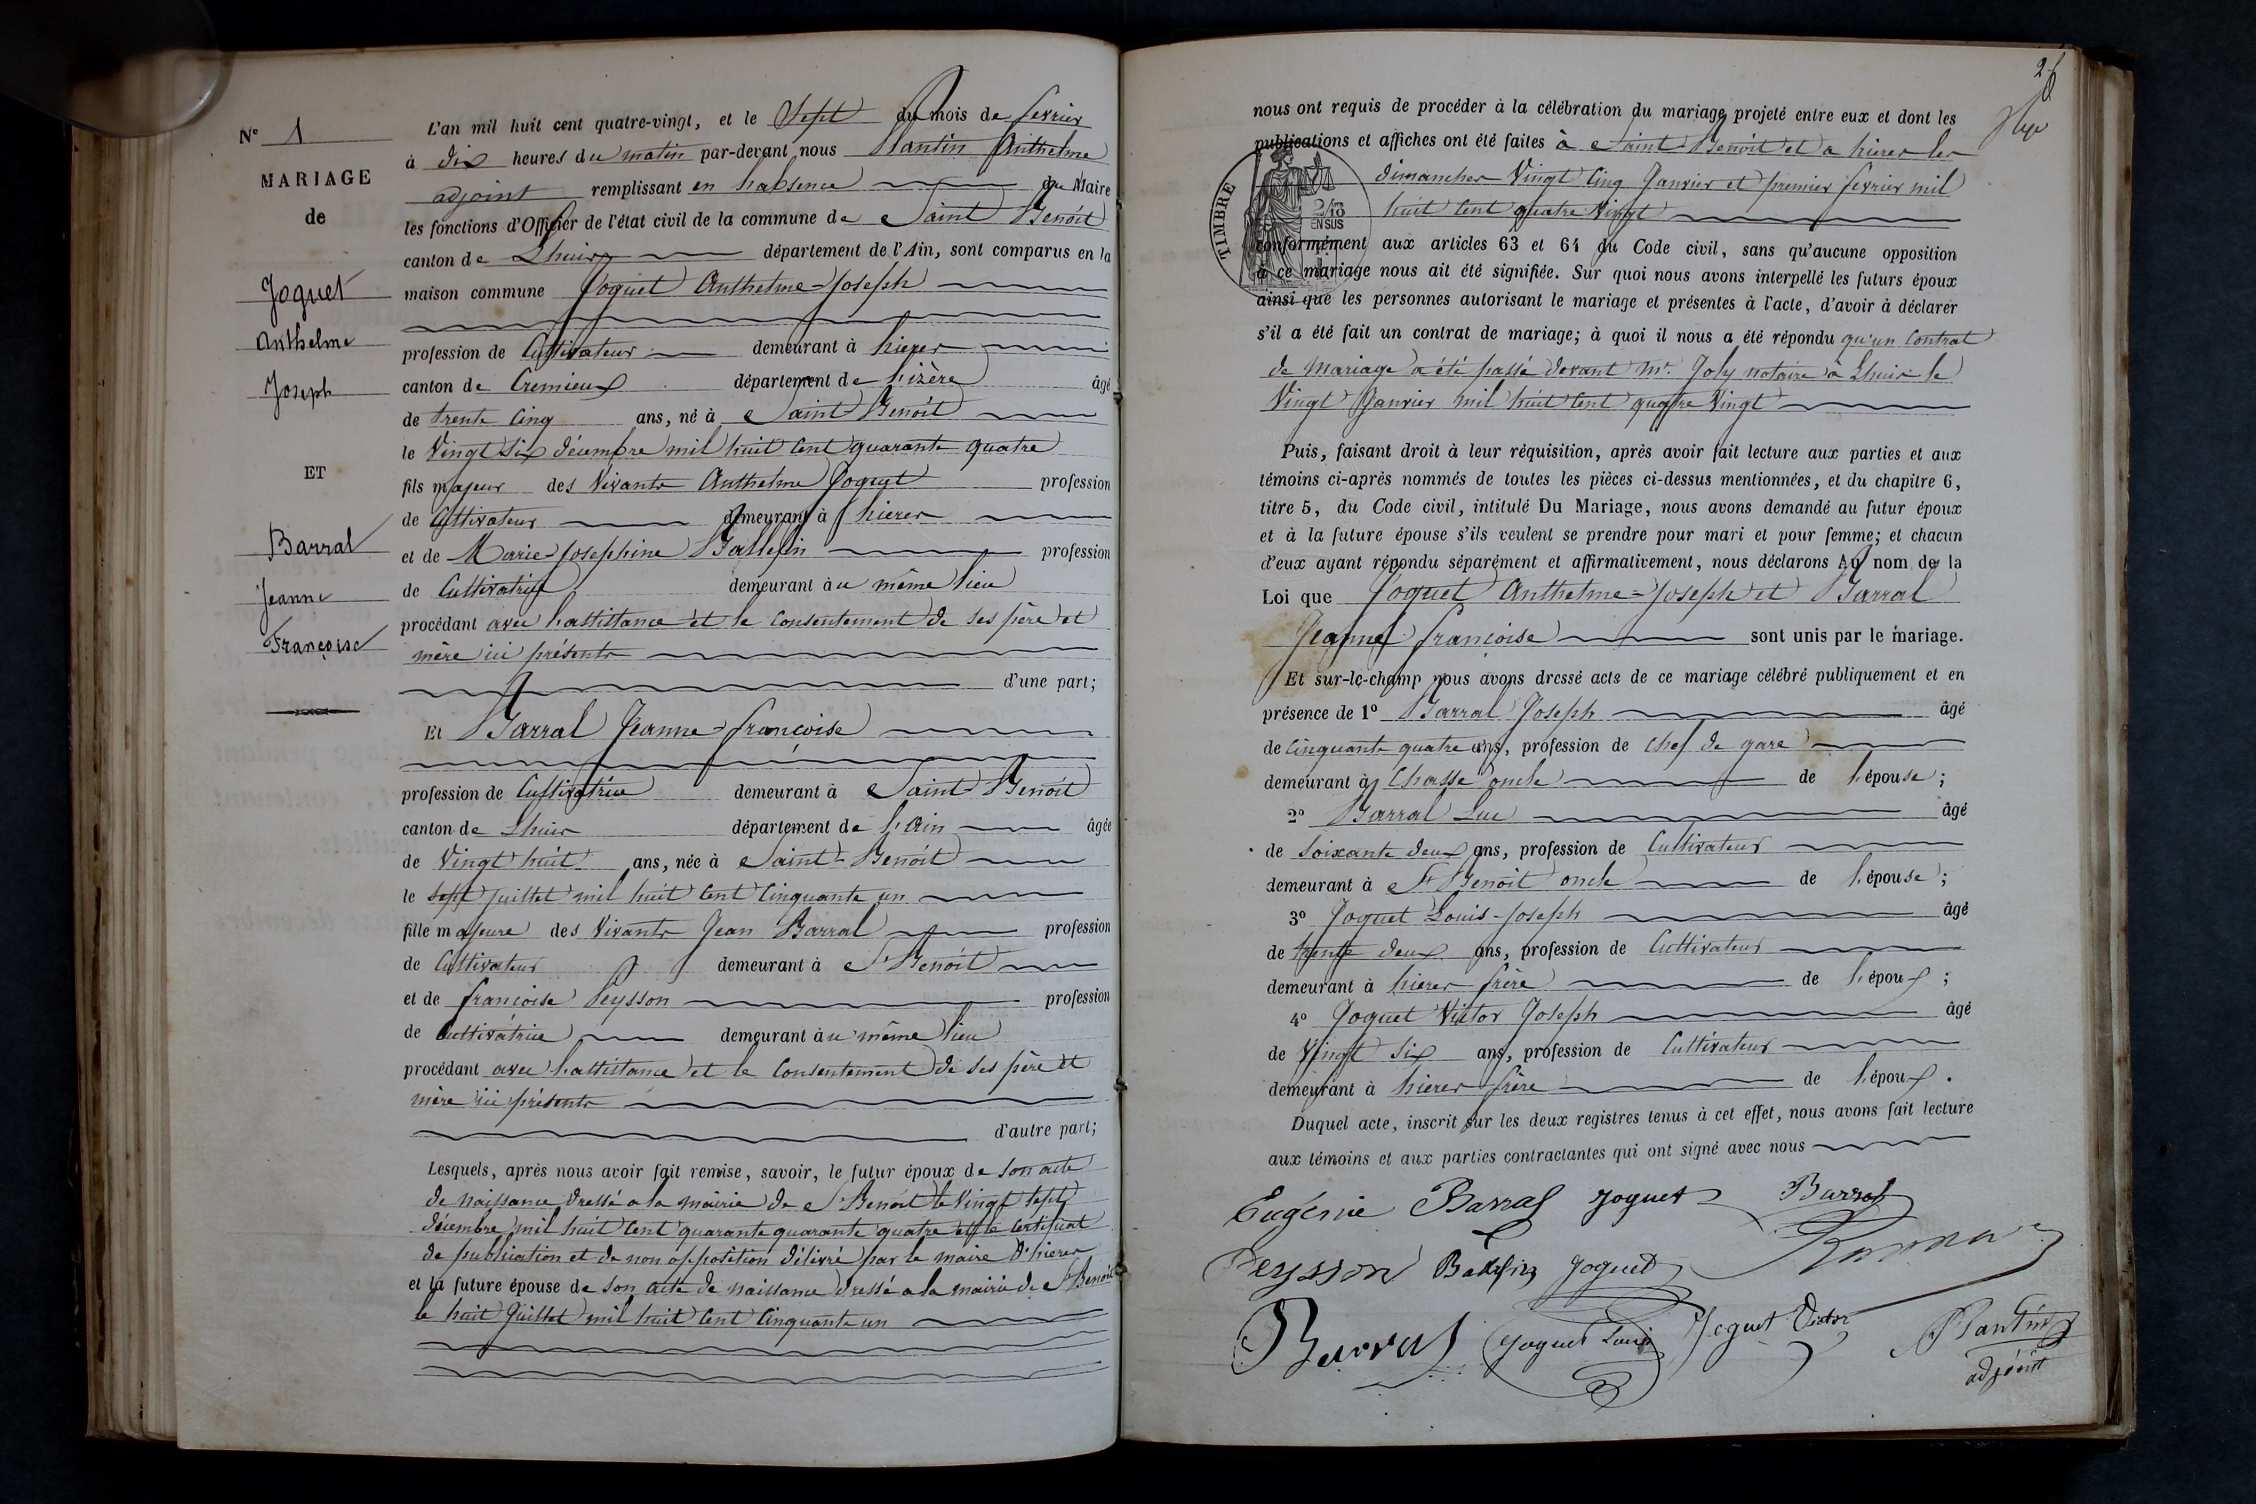 N° 1
MARIAGE
de
Joguet
Anthelme
Joseph
ET
Barral
Jeanne
Françoise
L'an mil huit cent quatre-vingt, et le Sept du mois de fevrier
à dix heures du matin par-devant nous Plantin Anthelme
adjoint remplissant en habsence du Maire
les fonctions d'Officier de l'état civil de la commune de Saint Benoit
canton de Lhuis département de l'Ain, sont comparus en la
maison commune Joguet Anthelme-Joseph
profession de Cultivateur demeurant à hieres
canton de Cremieux département de hizère âgé
de trente Cinq ans, né à Saint Benoit
le Vingt Six décembre mil huit Cent quarante quatre
fils majeur des Vivants Anthelme Joguet profession
de Cultivateur demeurant à hieres
et de Marie-Josephine Ballefin profession
de Cultivatrice demeurant au même lieu
procédant avec hastittance et le Consentement de ses père et
mère ici présents
d'une part;
Et Barral Jeanne-françoise
profession de Cultivatrice demeurant à Saint Benoit
canton de Lhuis département de l'Ain âgée
de Vingt huit ans, née à Saint-Benoit
le sept juillet mil huit Cent Cinquante un
fille majeure des Vivants Jean Barral profession
de Cultivateur demeurant à St Benoit
et de françoise Peysson profession
de Cultivatrice demeurant au même lieu
procédant avec hastittance et le Consentement de ses père et
mère ici présents
d'autre part;
Lesquels, après nous avoir fait remise, savoir, le futur époux de son acte
de naissance dressé a la mairie de St Benoit le Vingt sept
décembre mil huit Cent quarante quarante quatre et le Certificat
de publication et de non opposition délivré par le maire d'hieres
et la future épouse de son acte de naissance dressé a la mairie de St Benoit
le huit Juillet mil huit Cent Cinquante un
2
nous ont requis de procéder à la célébration du mariage projeté entre eux et dont les
publications et affiches ont été faites à Saint Benoit et a hieres les
dimanches Vingt Cinq Janvier et premier fevrier mil
huit Cent quatre Vingt
TIMBRE
2/10
EN SUS
conformément aux articles 63 et 64 du Code civil, sans qu'aucune opposition
à ce mariage nous ait été signifiée. Sur quoi nous avons interpellé les futurs époux
ainsi que les personnes autorisant le mariage et présentes à l'acte, d'avoir à déclarer
s'il a été fait un contrat de mariage; à quoi il nous a été répondu qu'un Contrat
de Mariage a été passé devant Mr. Joly notaire à Lhuis le
Vingt Janvier mil huit Cent quatre Vingt
Puis, faisant droit à leur réquisition, après avoir fait lecture aux parties et aux
témoins ci-après nommés de toutes les pièces ci-dessus mentionnées, et du chapitre 6,
titre 5, du Code civil, intitulé Du Mariage, nous avons demandé au futur époux
et à la future épouse s'ils veulent se prendre pour mari et pour femme; et chacun
d'eux ayant répondu séparément et affirmativement, nous déclarons Au nom de la
Loi que Joguet Anthelme-Joseph et Barral
Jeanne françoise sont unis par le mariage.
Et sur-le-champ nous avons dressé acte de ce mariage célébré publiquement et en
présence de 1° Barral Joseph âgé
de Cinquante quatre ans, profession de chef de gare
demeurant à Chasse oncle de l'épouse;
2° Barral Luc âgé
de Soixante deux ans, profession de Cultivateur
demeurant à St Benoit oncle de l'épouse;
3° Joguet Louis-Joseph âgé
de trente deux ans, profession de Cultivateur
demeurant à hieres frère de l'époux;
4° Joguet Victor Joseph âgé
de Vingt Six ans, profession de Cultivateur
demeurant à hieres frère de l'époux.
Duquel acte, inscrit sur les deux registres tenus à cet effet, nous avons fait lecture
aux témoins et aux parties contractantes qui ont signé avec nous
Eugénie Barral Joguet Barral
Peysson Ballefin Joguet
Barral Joguet Louis Joguet Victor Plantin
adjoint